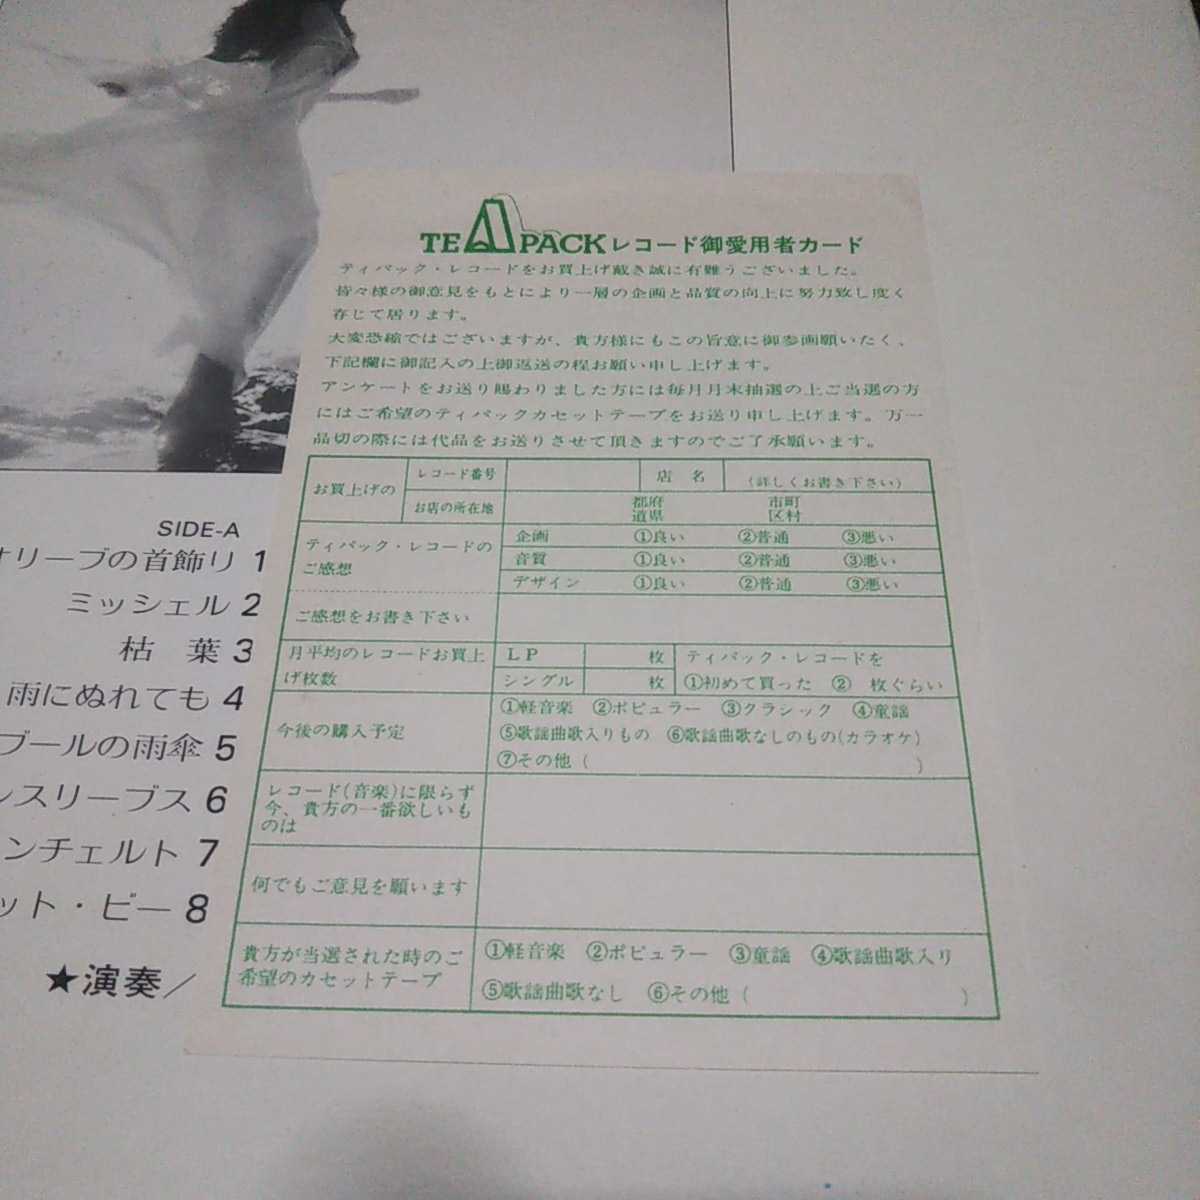 TEAPACKレコード御愛用者カード
ティパック・レコードをお買上げ戴き誠に有難うございました。
皆々様の御意見をもとにより一層の企画と品質の向上に努力致し度く
存じて居ります。
大変恐縮ではございますが、貴方様にもこの旨意に御参画願いたく、
下記欄に御記入の上御返送の程お願い申し上げます。
アンケートをお送り賜わりました方には毎月月末抽選の上ご当選の方
にはご希望のティパックカセットテープをお送り申し上げます。万一
品切の際には代品をお送りさせて頂きますのでご了承願います。
お買上げの
レコード番号
店 名
(詳しくお書き下さい)
お店の所在地
都府 市町
道県 区村
ティパック・レコードの
ご感想
企画 ①良い ②普通 ③悪い
音質 ①良い ②普通 ③悪い
デザイン ①良い ②普通 ③悪い
ご感想をお書き下さい
月平均のレコードお買上
げ枚数
LP 枚
シングル 枚
ティパック・レコードを
①初めて買った ② 枚ぐらい
今後の購入予定
①軽音楽 ②ポピュラー ③クラシック ④童謡
⑤歌謡曲歌入りもの ⑥歌謡曲歌なしのもの(カラオケ)
⑦その他( )
レコード(音楽)に限らず
今、貴方の一番欲しいも
のは
何でもご意見を願います
貴方が当選された時のご
希望のカセットテープ
①軽音楽 ②ポピュラー ③童謡 ④歌謡曲歌入り
⑤歌謡曲歌なし ⑥その他( )
SIDE-A
オリーブの首飾り 1
ミッシェル 2
枯 葉 3
雨にぬれても 4
ブールの雨傘 5
ンスリーブス 6
ンチェルト 7
ット・ビー 8
★演奏/